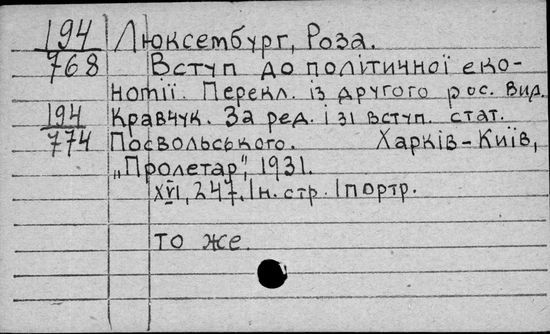 194 Люксембург, Роза.
768 Вступ до політичної еко-
номії. Перекл. із другого рос. вид.
194 Кравчук. За ред. і зі вступ. стат.
774 Посвольського. Харків-Київ,
„Пролетар", 1931.
XVI, 247, Iн. стр. Iпортр.
то же.